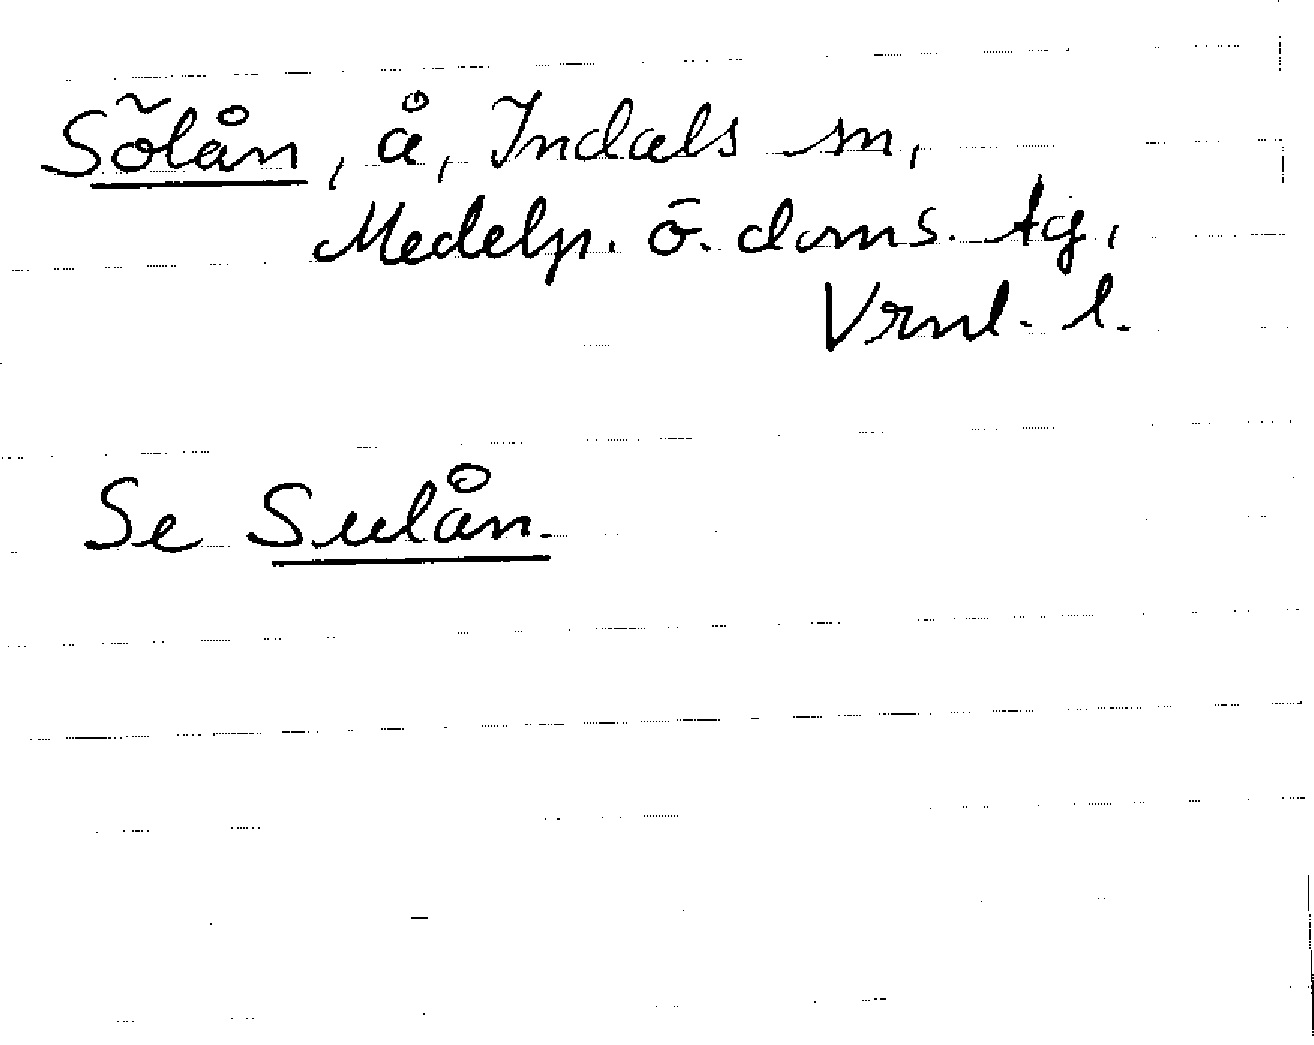 Sölån, å, Indals sn,
Medelp. ö. doms. tg,
Vrnl. l.
Se Sulån.